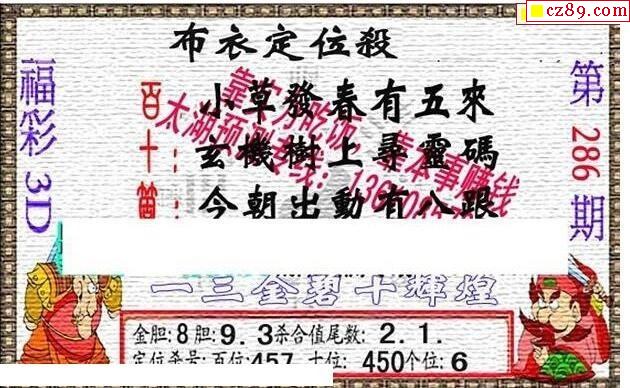 cz89.com
布衣定位殺
福彩3D
第286期
百十箇
小草發春有五來
玄機樹上尋靈碼
今朝出動有八跟
一三金碧十輝煌
金胆:8胆:9.3杀合值尾数:2.1.
定位杀号:百位:457 十位:450个位:6